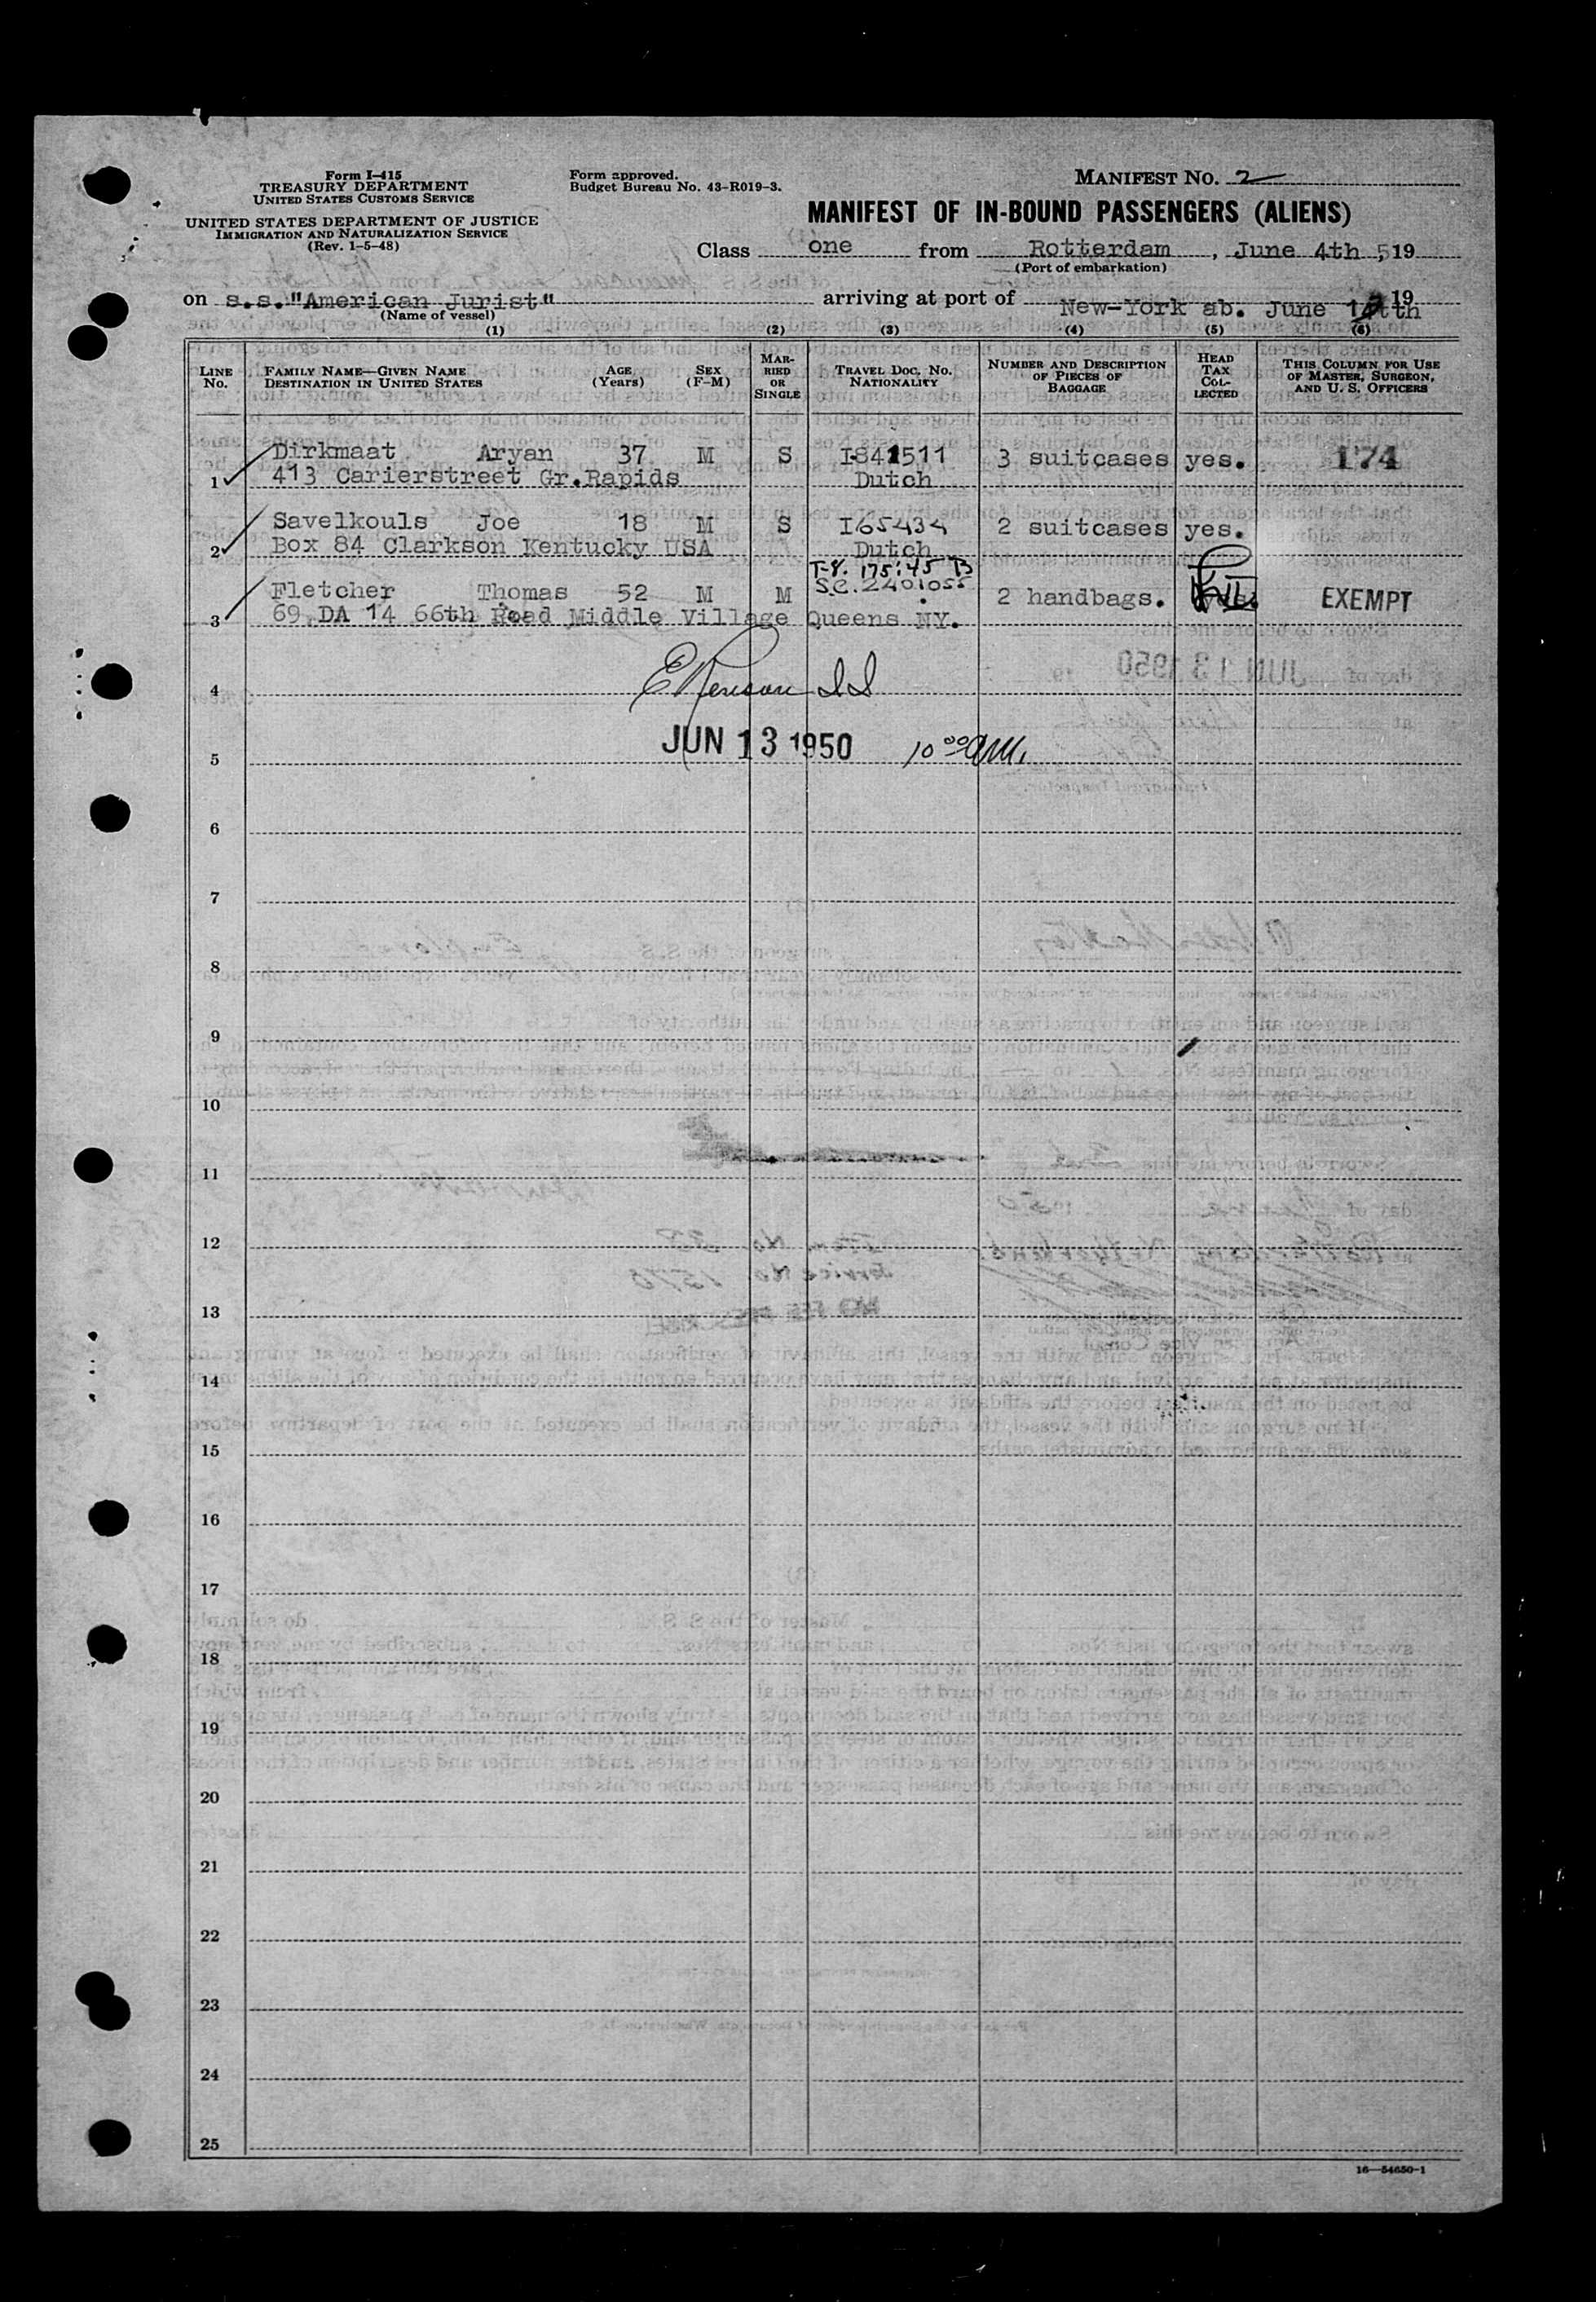 Form I-415
TREASURY DEPARTMENT
UNITED STATES CUSTOMS SERVICE
UNITED STATES DEPARTMENT OF JUSTICE
IMMIGRATION AND NATURALIZATION SERVICE
(Rev. 1-5-48)
Form approved.
Budget Bureau No. 43-R019-3.
MANIFEST No. 2
MANIFEST OF IN-BOUND PASSENGERS (ALIENS)
Class one from Rotterdam, June 4th 5, 19
(Port of embarkation)
on s.s. "American Jurist" arriving at port of New-York ab. June 19
(Name of vessel)
(1) (2) (3) (4) (5) (6)
LINE No. FAMILY NAME—GIVEN NAME DESTINATION IN UNITED STATES AGE (Years) SEX (F-M) MARRIED OR SINGLE TRAVEL DOC. No. NATIONALITY NUMBER AND DESCRIPTION OF PIECES OF BAGGAGE HEAD TAX COLLECTED THIS COLUMN FOR USE OF MASTER, SURGEON, AND U. S. OFFICERS
Dirkmaat Aryan 37 M S I-841511 3 suitcases yes. 174
1 413 Carierstreet Gr.Rapids Dutch
Savelkouls Joe 18 M S I65434 2 suitcases yes.
2 Box 84 Clarkson Kentucky USA Dutch
T-8. 175:45 B
Fletcher Thomas 52 M M S.C. 2401055 2 handbags. EXEMPT
3 69 DA 14 66th Road Middle Village Queens NY.
4
JUN 13 1950 10 00 AM.
5
6
7
8
9
10
11
12
13
14
15
16
17
18
19
20
21
22
23
24
25
16—54650-1